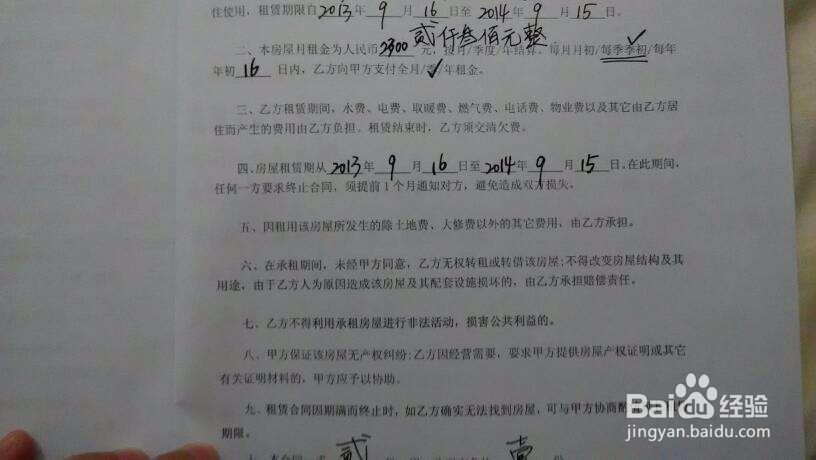 住使用，租赁期限自2013年9月16日至2014年9月15日。
贰仟叁佰元整
二、本房屋月租金为人民币2300元，按月/季度/年结算。每月月初/每季季初/每年
年初16日内，乙方向甲方支付全月/季/年租金。
三、乙方租赁期间，水费、电费、取暖费、燃气费、电话费、物业费以及其它由乙方居
住而产生的费用由乙方负担。租赁结束时，乙方须交清欠费。
四、房屋租赁期从2013年9月16日至2014年9月15日。在此期间，
任何一方要求终止合同，须提前1个月通知对方，避免造成双方损失。
五、因租用该房屋所发生的除土地费、大修费以外的其它费用，由乙方承担。
六、在承租期间，未经甲方同意，乙方无权转租或转借该房屋;不得改变房屋结构及其
用途，由于乙方人为原因造成该房屋及其配套设施损坏的，由乙方承担赔偿责任。
七、乙方不得利用承租房屋进行非法活动，损害公共利益的。
八、甲方保证该房屋无产权纠纷;乙方因经营需要，要求甲方提供房屋产权证明或其它
有关证明材料的，甲方应予以协助。
九、租赁合同因期满而终止时，如乙方确实无法找到房屋，可与甲方协商酌
期限。
贰 壹
Baidu经验
jingyan.baidu.com